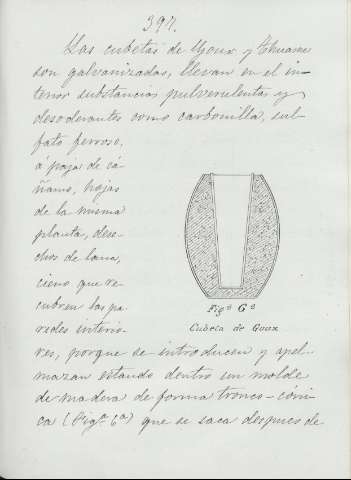 397.
Las cubetas de Goux y Thuasne
son galvanizadas, llevan en el in-
terior substancias pulverulentas y
desodorantes como carbonilla, sul-
fato ferroso,
ó paja de cá-
ñamo, hojas
de la misma
planta, dese-
chos de lana,
cieno que re-
cubren las pa-
redes interio-
res, porque se introducen y apel-
mazan estando dentro un molde
de madera de forma tronco-cóni-
ca (Figª 6ª) que se saca despues de
Figª 6ª
Cubeta de Goux